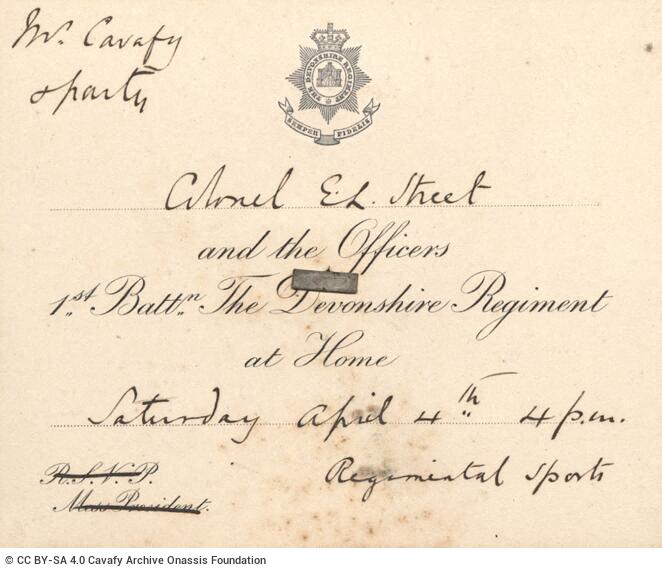 Mr. Cavafy
& party
THE DEVONSHIRE REGIMENT
SEMPER FIDELIS
Colonel E.L. Street
and the Officers
1.st Batt.n The Devonshire Regiment
at Home
Saturday April 4th 4 p.m.
R.S.V.P.
Regimental Sports
Mess President.
© CC BY-SA 4.0 Cavafy Archive Onassis Foundation